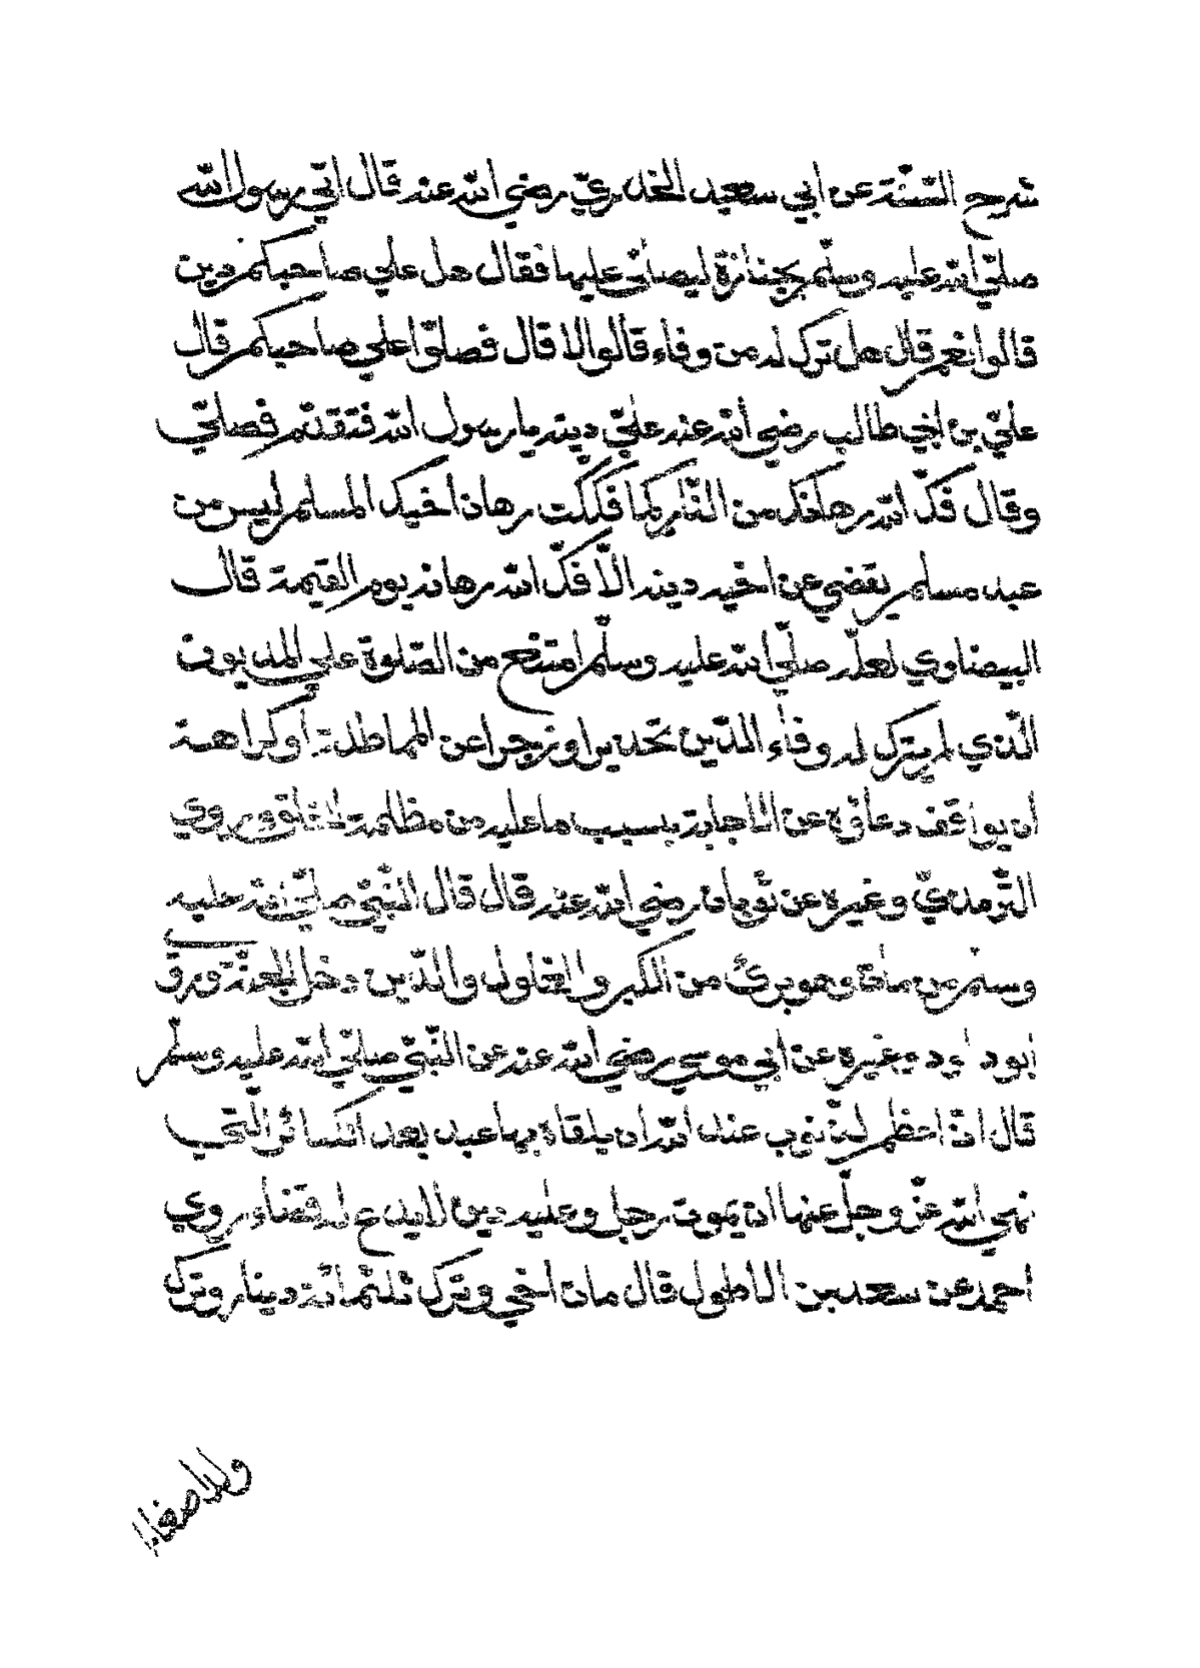 شرح السّنّة عن ابي سعيد الخدريّ رضي الله عنه قال اتي رسول الله
صلّي الله عليه وسلّم بجنازة ليصلّي عليها فقال هل علي صاحبكم دين
قالوا نعم قال هل ترك له من وفاء قالوا لا قال فصلّوا علي صاحبكم قال
عليّ بن ابي طالب رضي الله عنه عليّ دينه يا رسول الله فتقدّم فصلّي
وقال فكّ الله رهانك من النّار كما فككت رهان اخيك المسلم ليس من
عبد مسلم يقضي عن اخيه دينه الّا فكّ الله رهانه يوم القيمة قال
البيضاوي لعلّه صلّي الله عليه وسلّم امتنع من الصّلوة علي المديون
الّذي لم يترك له وفاء الدّين تحذيرا وزجرا عن المماطلة او كراهة
ان يوافق دعاؤه عن الاجابة بسبب ما عليه من مظلمة الخلق وروي
التّرمذيّ وغيره عن ثوبان رضي الله عنه قال قال النّبيّ صلّي الله عليه
وسلّم من مات وهو بريّ من الكبر والغلول والدّين دخل الجنّة وروي
ابو داود وغيره عن ابي موسي رضي الله عنه عن النّبيّ صلّي الله عليه وسلّم
قال انّ اعظم الذّنوب عند الله ان يلقاه بها عبد بعد الكبائر الّتي
نهي الله عزّ وجلّ عنها ان يموت رجل وعليه دين لا يدع له قضاء وروي
احمد عن سعد بن الاطول قال مات اخي وترك ثلثمائة دينار وترك
ولدا صغارا